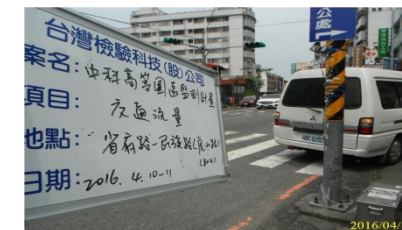 台灣檢驗科技(股)公司
案名:中科高等園區監測計畫
項目:交通流量
地點:省府路-民族路(虎山路)
日期:2016. 4. 10-11
公處
2016/04/